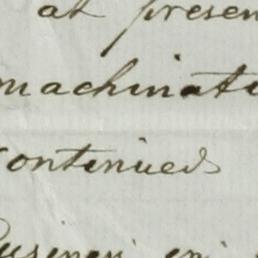 at presen
machinati
continued